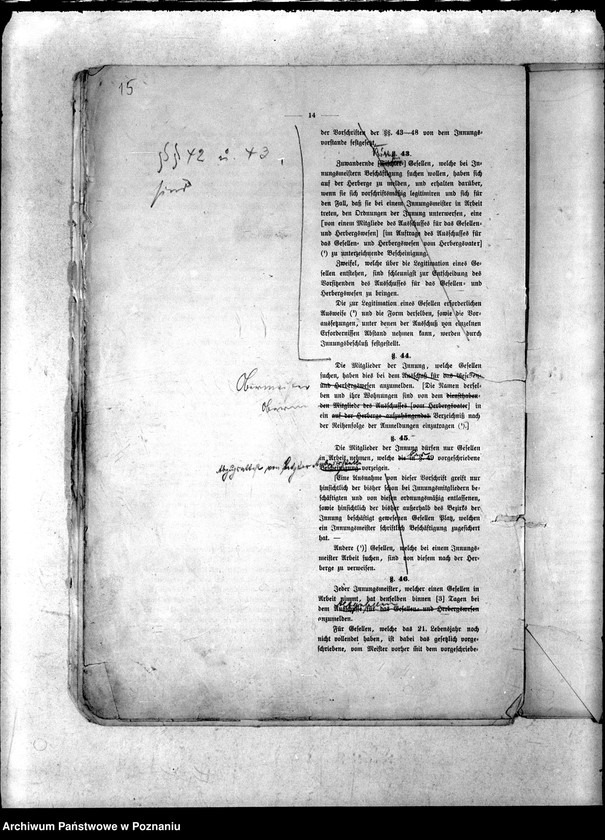 15
— 14 —
§§ 42 u. 43.
sind
der Vorschriften der §§. 43—48 von dem Innungs-
vorstande festgesetzt.
§. 43.
Zuwandernde Gesellen, welche bei In-
nungsmeistern Beschäftigung suchen wollen, haben sich
auf der Herberge zu melden, und erhalten darüber,
wenn sie sich vorschriftsmäßig legitimiren und sich für
den Fall, daß sie bei einem Innungsmeister in Arbeit
treten, den Ordnungen der Innung unterwerfen, eine
[von einem Mitgliede des Ausschusses für das Gesellen-
und Herbergswesen] [im Auftrage des Ausschusses für
das Gesellen- und Herbergswesen vom Herbergsvater]
(¹) zu unterzeichnende Bescheinigung.
Zweifel, welche über die Legitimation eines Ge-
sellen entstehen, sind schleunigst zur Entscheidung des
Vorsitzenden des Ausschusses für das Gesellen- und
Herbergswesen zu bringen.
Die zur Legitimation eines Gesellen erforderlichen
Ausweise (²) und die Form derselben, sowie die Vor-
aussetzungen, unter denen der Ausschuß von einzelnen
Erfordernissen Abstand nehmen kann, werden durch
Innungsbeschluß festgestellt.
§. 44.
Die Mitglieder der Innung, welche Gesellen
suchen, haben dies bei dem Ausschuß für das Gesellen-
und Herbergswesen anzumelden. [Die Namen dersel-
Obermeister
ben und ihre Wohnungen sind von dem diensthaben-
den Mitgliede des Ausschusses [vom Herbergsvater] in
ein auf der Herberge aufzuhängendes Verzeichniß nach
der Reihenfolge der Anmeldungen einzutragen (³).]
§. 45.
Die Mitglieder der Innung dürfen nur Gesellen
in Arbeit nehmen, welche die in §. 43 vorgeschriebene
Bescheinigung vorzeigen.
[Eine Ausnahme von dieser Vorschrift greift nur
hinsichtlich der bisher schon bei Innungsmitgliedern be-
schäftigten und von diesen ordnungsmäßig entlassenen,
sowie hinsichtlich der bisher außerhalb des Bezirks der
Innung beschäftigt gewesenen Gesellen Platz, welchen
ein Innungsmeister schriftlich Beschäftigung zugesichert
hat. —
Andere (⁴)] Gesellen, welche bei einem Innungs-
meister Arbeit suchen, sind von diesem nach der Her-
berge zu verweisen.
§. 46.
Jeder Innungsmeister, welcher einen Gesellen in
Arbeit nimmt, hat denselben binnen [3] Tagen bei
dem Ausschusse für das Gesellen- und Herbergswesen
anzumelden.
Für Gesellen, welche das 21. Lebensjahr noch
nicht vollendet haben, ist dabei das gesetzlich vorge-
schriebene, vom Meister vorher mit dem vorgeschriebe-
Archiwum Państwowe w Poznaniu